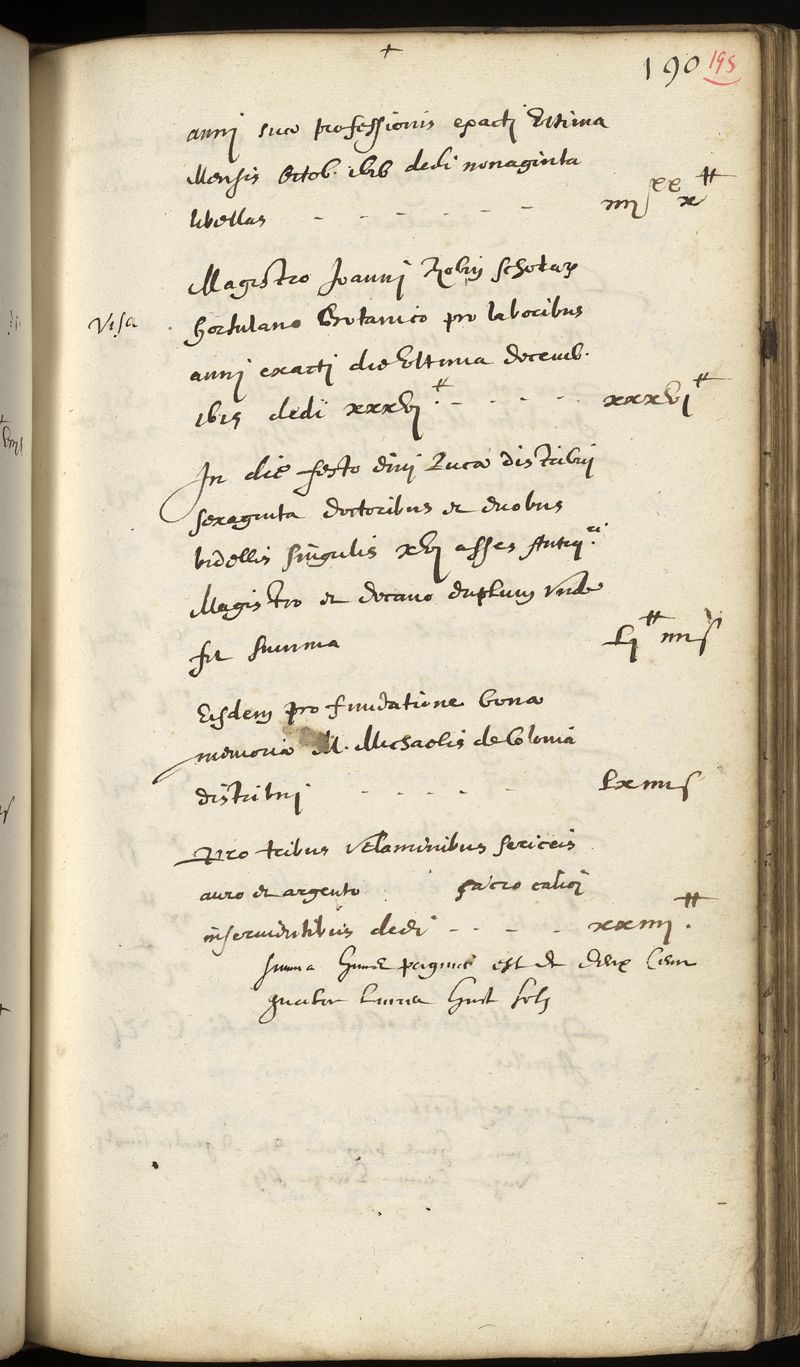 190 195
anni suæ professionis exacti ultima
Mensis octob. 1615 dedi nonaginta
libellas - - - - - - iiii xx x ₶
Magistro Joanni Robin scholæ
Visa hortulano Botanico pro laboribus
anni exacti die ultima decemb.
1615 dedi xxxvj ₶ - - - - xxxvj ₶
In die festo divi Lucæ distribui
sexaginta doctoribus et duobus
bidellis singulis xvj asses
Magistro et decano duplum unde
fit summa Lj ₶ iiii s
Eisdem pro fundatione bonæ
memoriæ M. Michaelis de Colonia
distribui - - - - - Lx iiii s
Pro tribus velaminibus sericeis
auro et argento sacro calici
inservientibus dedi - - - - xxiiii ₶
Summa est de deux Cens
quatre livres huit solz